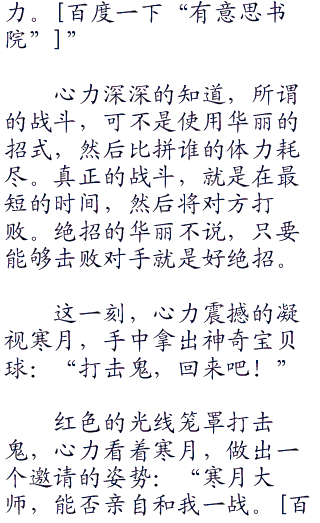 力。[百度一下“有意思书
院”]”
心力深深的知道，所谓
的战斗，可不是使用华丽的
招式，然后比拼谁的体力耗
尽。真正的战斗，就是在最
短的时间，然后将对方打
败。绝招的华丽不说，只要
能够击败对手就是好绝招。
这一刻，心力震撼的凝
视寒月，手中拿出神奇宝贝
球：“打击鬼，回来吧！”
红色的光线笼罩打击
鬼，心力看着寒月，做出一
个邀请的姿势：“寒月大
师，能否亲自和我一战。[百